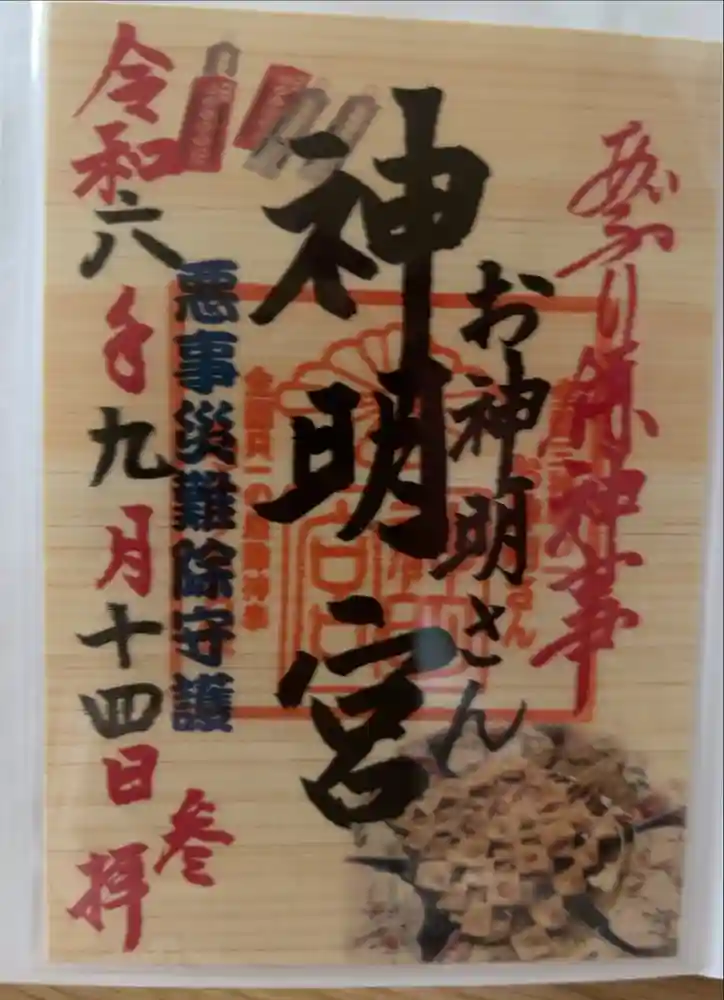 祭り 神事
お神明さん
神明宮
悪事災難除守護
令和六年九月十四日
参拝